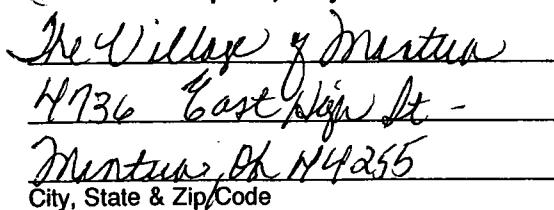 The Village of Mantua
4736 East High St -
Mantua, Oh 44255
City, State & Zip Code